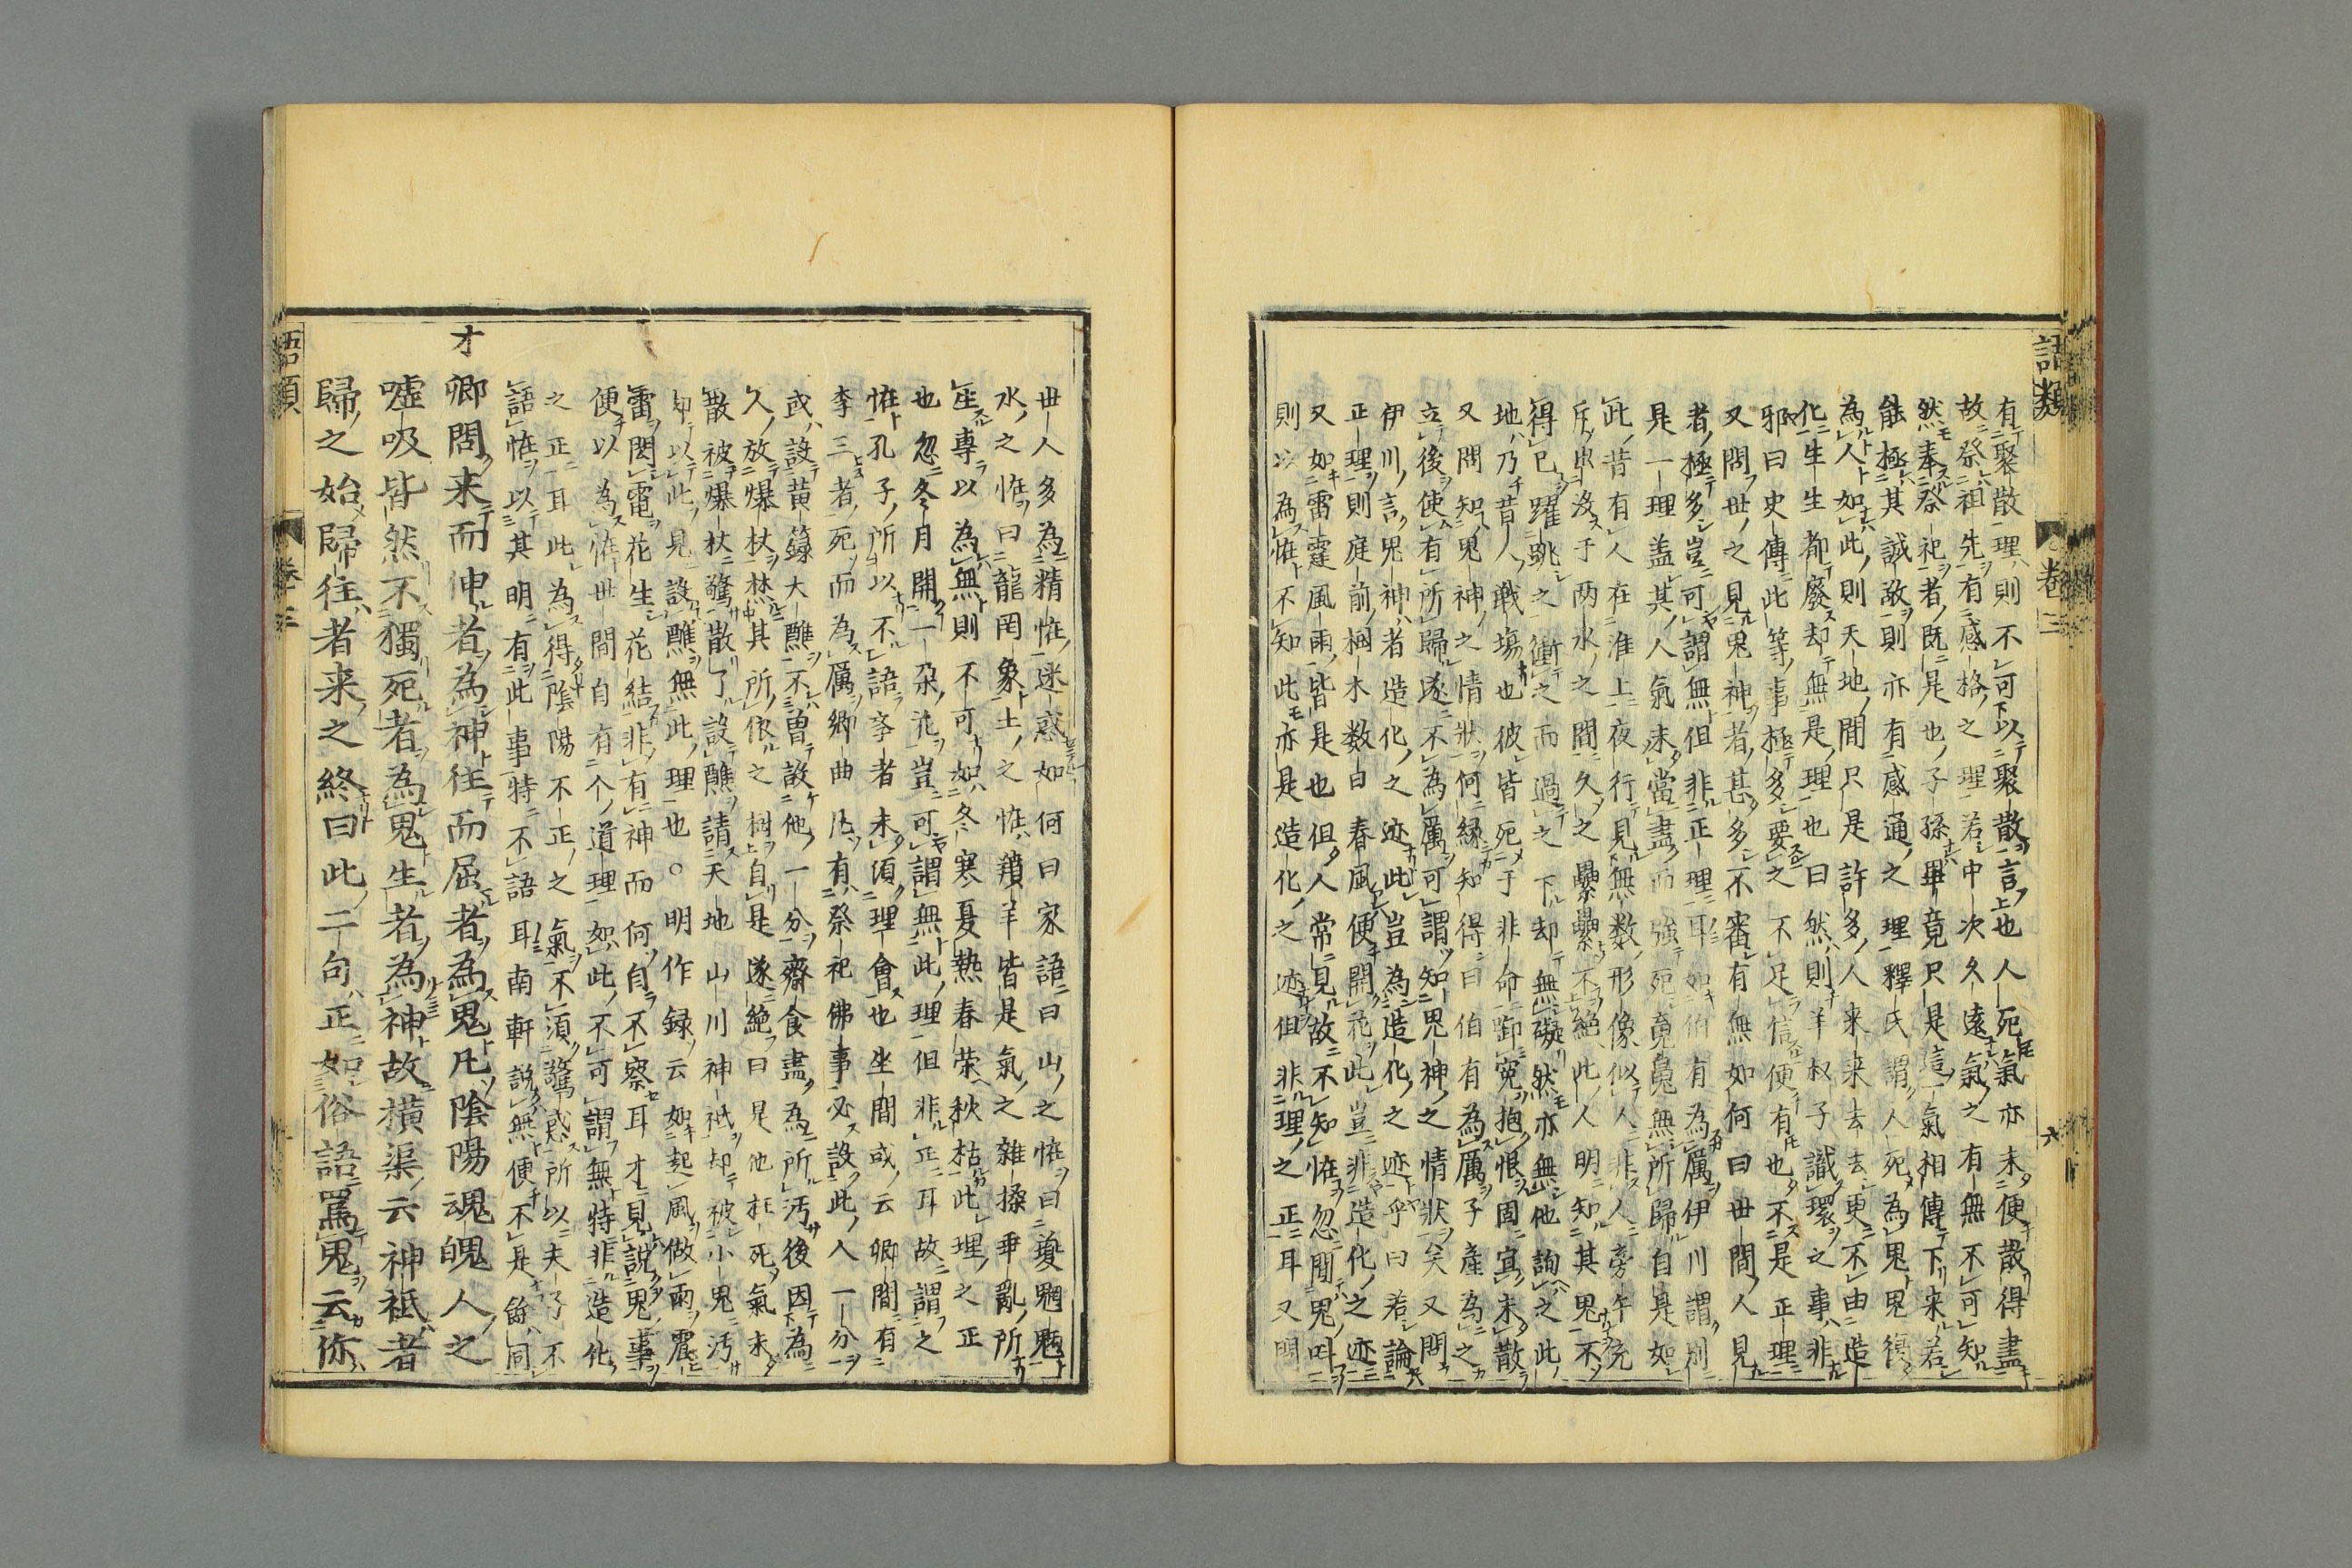 語類 卷三 六
有聚散理則不可以聚散言也人死氣亦未便散得盡
故祭祖先有感格之理若中次久遠氣之有無不可知
然奉祭祀者既是也子孫畢竟只是這一氣相傳下来若
能極其誠敬則亦有感通之理釋氏謂人死為鬼鬼復
為人如此則天地間只是許多人来来去去更不由造
化生生都廢却無是理也曰然則羊叔子識環之事非
邪曰史傳此等事極多要之不足信便有也不是正理
又問世之見鬼神者甚多不審有無如何曰世間人見
者極多豈可謂無但非正理耳如伯有為厲伊川謂別
是一理盖其人氣未當盡而強死䰟鬼無所歸自是如
此昔有人在淮上夜行見無数形像似人非人旁午充
斥出没于两水之間久之纍纍不絶此人明知其鬼不
得已躍跳之衝之而過之下却無礙然亦無他詢之此
地乃昔人戰塲也彼皆死于非命啣冤抱恨固宜未散
又問知鬼神之情狀何縁知得曰伯有為厲子產為之
立後使有所歸遂不為厲可謂知鬼神之情狀矣又問
伊川言鬼神者造化之迹此豈為造化之迹乎曰若論
正理則庭前樹木数日春風便開花此豈非造化之迹
又如雷霆風雨皆是也但人常見故不知怪忽聞鬼呌
則以為怪不知此亦是造化之迹但非理之正耳又明
世人多為精怪迷惑如何曰家語曰山之怪曰夔魍魎
水之怪曰龍罔象土之怪羵羊皆是氣之雜揉乖亂所
生專以為無則不可如冬寒夏熱春荣秋枯此理之正
也忽冬月開一朶花豈可謂無此理但非正耳故謂之
怪孔子所以不語李者未須理會也坐間或云鄉間有
李三者死而為厲鄉曲凡有祭祀佛事必設此人一分
或設黃籙大醮不曾設他一分齋食盡為所汚後因為
人放爆杖焚其所依之樹自是遂絶曰是他枉死氣未
散被爆杖驚散了設醮請天地山川神祇却被小鬼汚
却以此見設醮無此理也○明作録云如起風做雨震
雷閃電花生花結非有神而何自不察耳才見說鬼事
便以為怪世間自有个道理如此不可謂無特非造化
之正耳此為得陰陽不正之氣不須驚惑所以夫子不
語怪以其明有此事特不語耳南軒說無便不是餘同
才卿問来而伸者為神往而屈者為鬼凡陰陽魂魄人之
噓吸皆然不獨死者為鬼生者為神故橫渠云神祇者
歸之始歸往者来之終曰此二句正如俗語罵鬼云你
語類 卷三